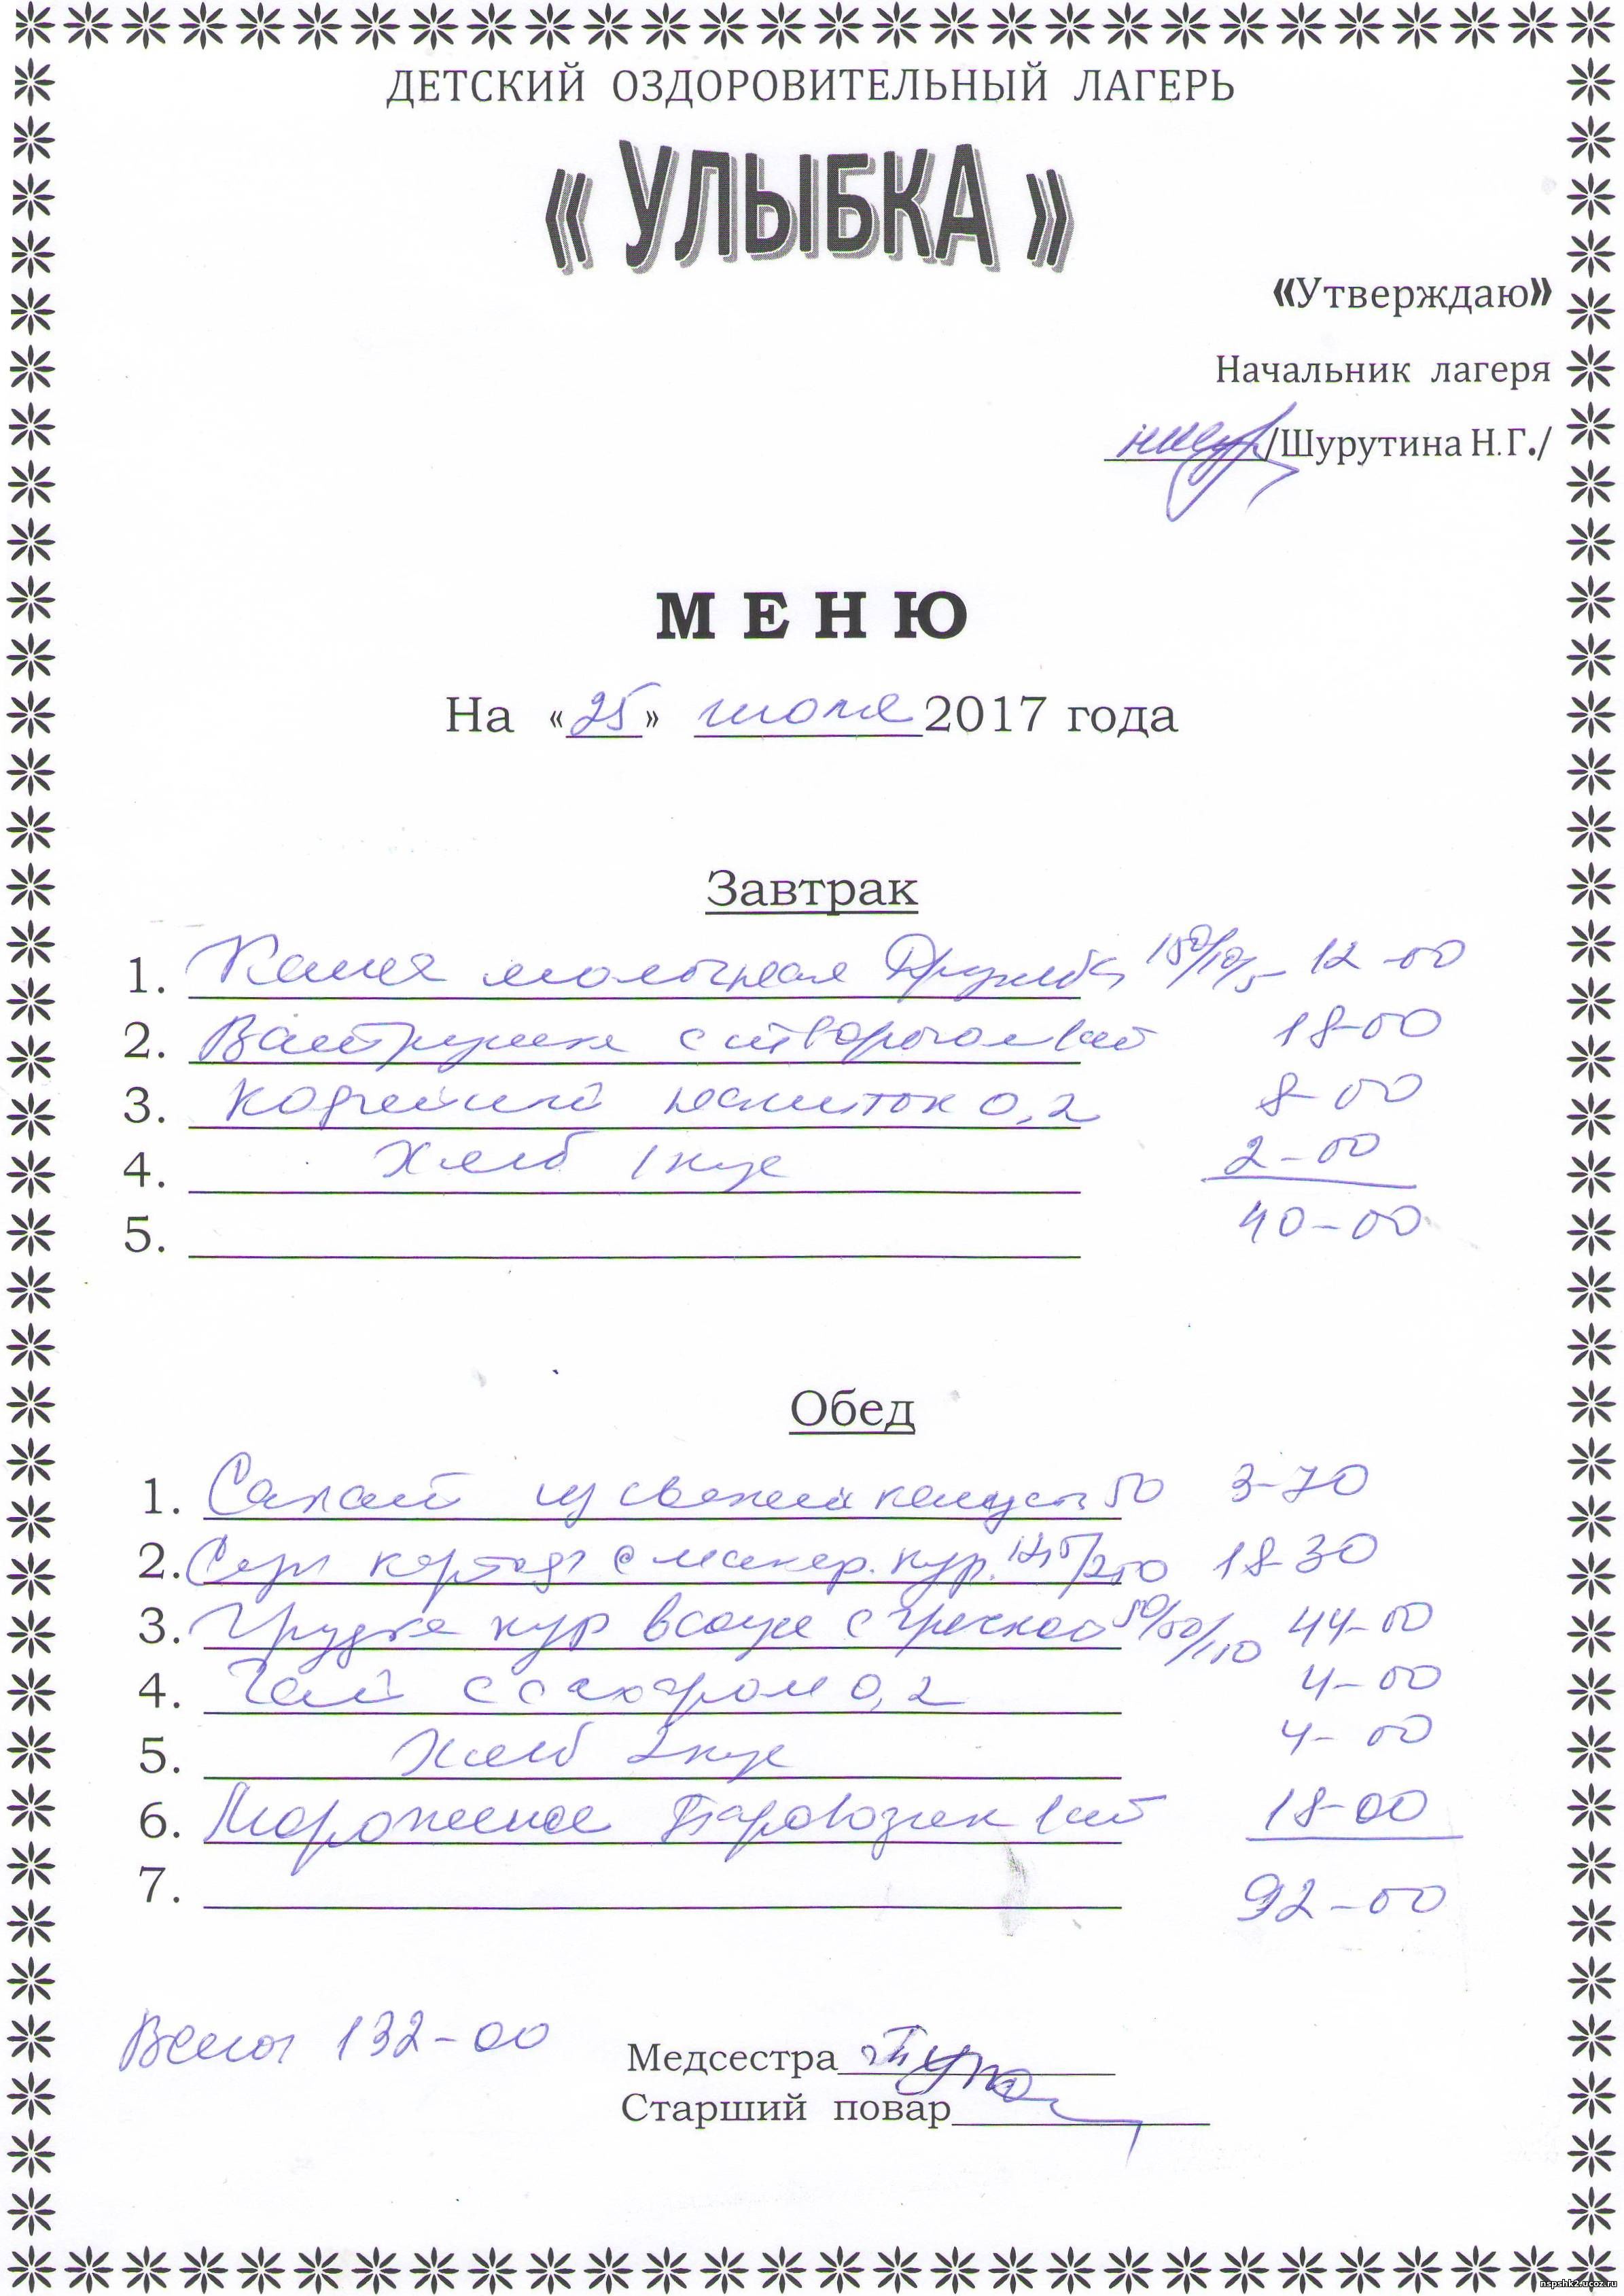 ДЕТСКИЙ ОЗДОРОВИТЕЛЬНЫЙ ЛАГЕРЬ
« УЛЫБКА »
«Утверждаю»
Начальник лагеря
/Шурутина Н.Г./
МЕНЮ
На «25» июля 2017 года
Завтрак
1. Каша молочная Дружба 150/10/5 12-00
2. Ватрушка с творогом 1шт 18-00
3. Кофейный напиток 0,2 8-00
4. Хлеб 1кус 2-00
5. 40-00
Обед
1. Салат из свежей капусты 50 3-70
2. Суп картоф с макар. кур. 12,5/250 18-30
3. Грудка кур в соусе с гречкой 50/50/110 44-00
4. Чай с сахаром 0,2 4-00
5. Хлеб 2кус 4-00
6. Мороженое Паровозик 1шт 18-00
7. 92-00
Всего 132-00
Медсестра
Старший повар
nspshk2.ucoz.ru